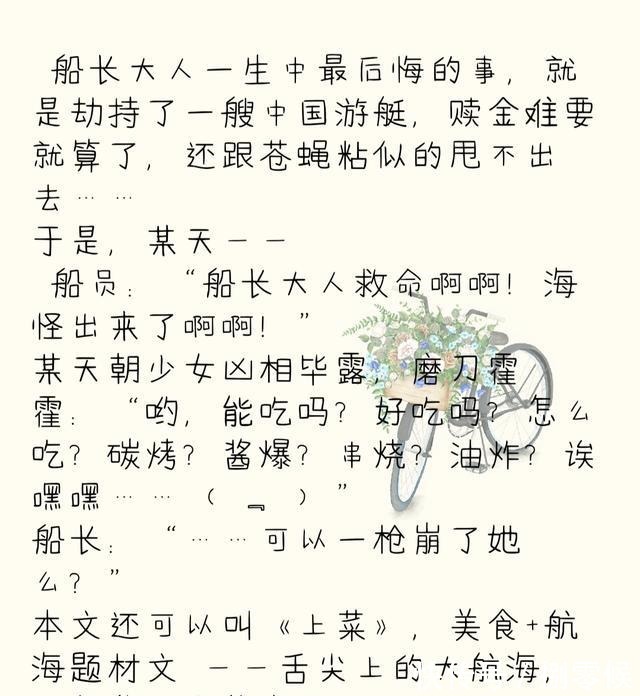 船长大人一生中最后悔的事，就
是劫持了一艘中国游艇，赎金难要
就算了，还跟苍蝇粘似的甩不出
去……
于是，某天——
船员：“船长大人救命啊啊！海
怪出来了啊啊！”
某天朝少女凶相毕露，磨刀霍
霍：“哟，能吃吗？好吃吗？怎么
吃？碳烤？酱爆？串烧？油炸？诶
嘿嘿……（﹃）”
船长：“……可以一枪崩了她
么？”
本文还可以叫《上菜》，美食+航
海题材文 ——舌尖上的大航海，